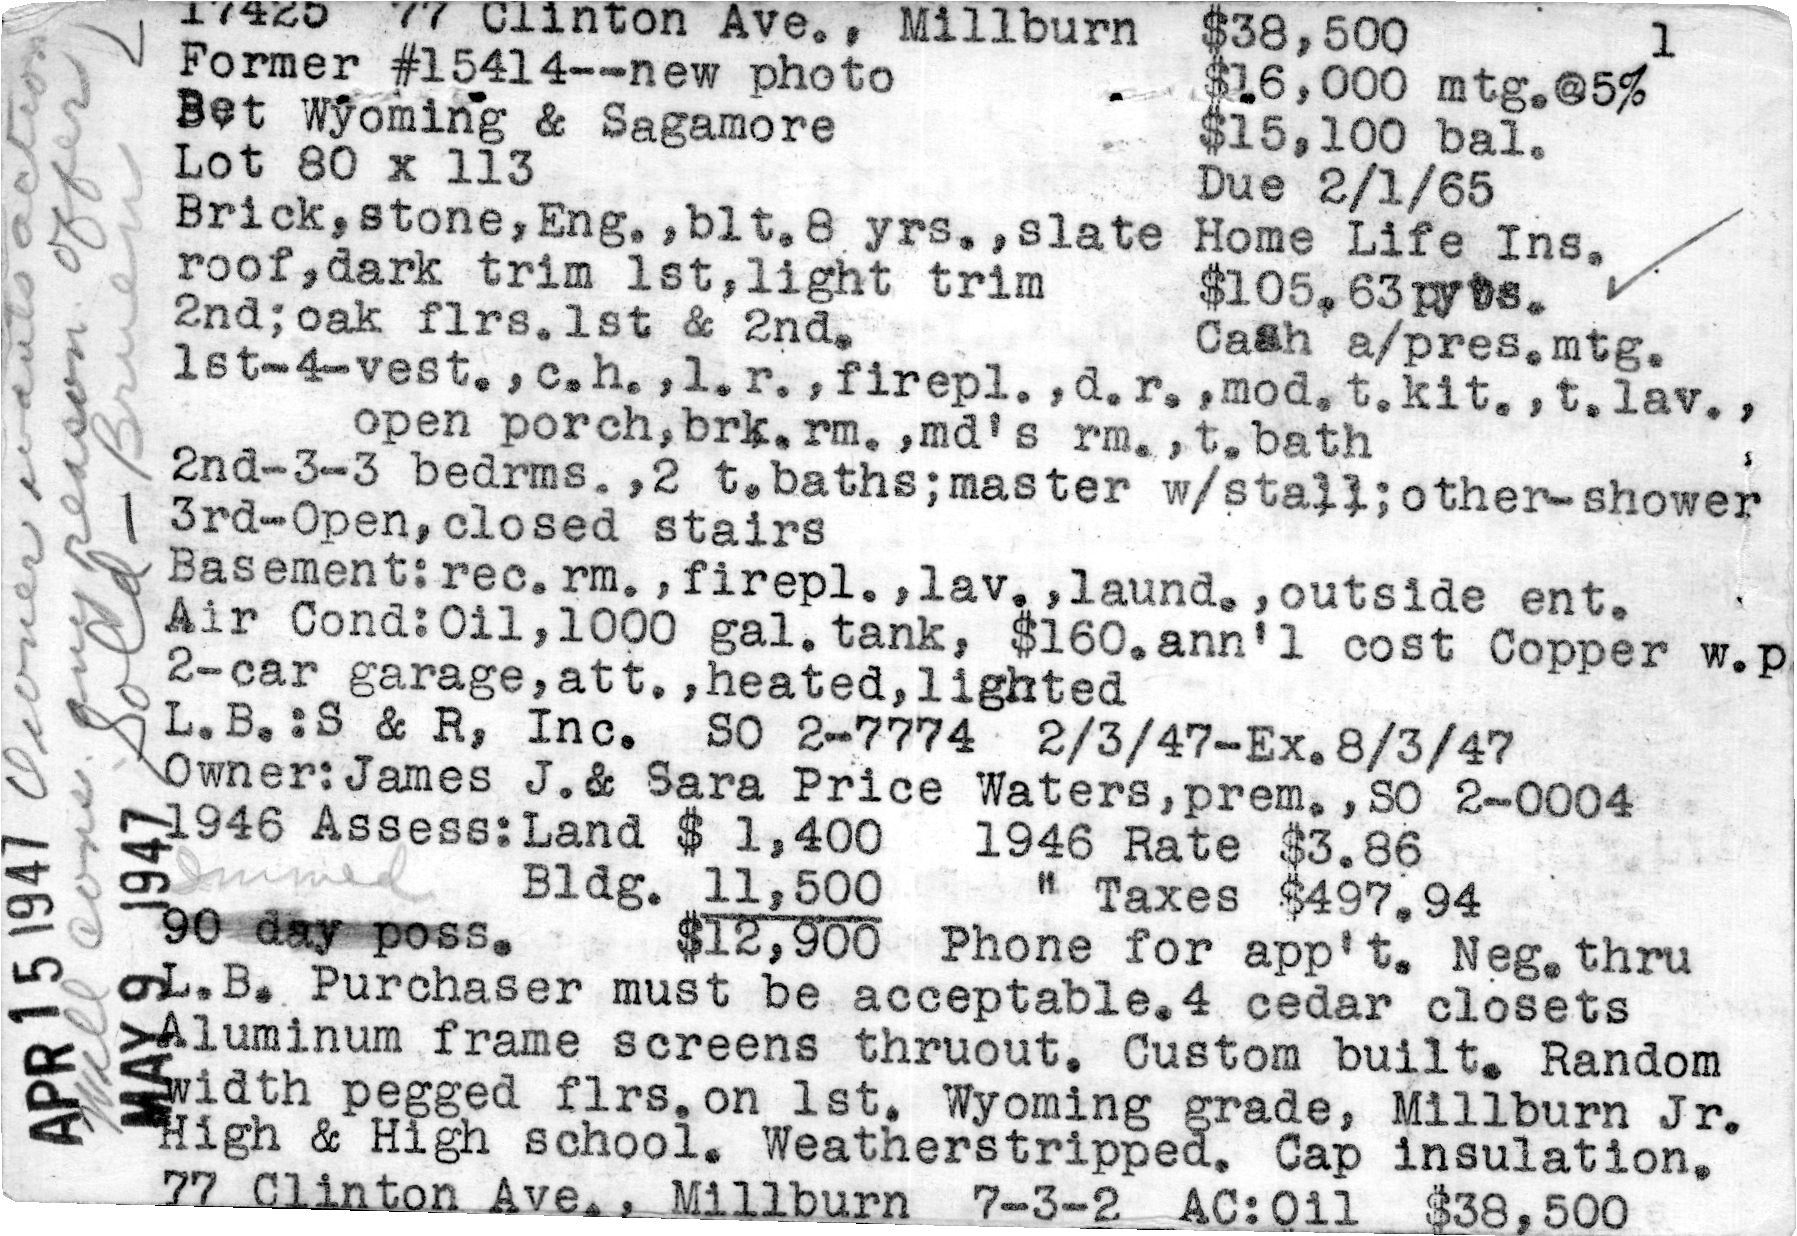 17425 77 Clinton Ave., Millburn $38,500 1
Former #15414--new photo $16,000 mtg.@5%
Bet Wyoming & Sagamore $15,100 bal.
Lot 80 x 113 Due 2/1/65
Brick,stone,Eng.,blt.8 yrs.,slate Home Life Ins.
roof,dark trim 1st,light trim $105.63pyts.
2nd;oak flrs.1st & 2nd. Cash a/pres.mtg.
1st-4-vest.,c.h.,l.r.,firepl.,d.r.,mod.t.kit.,t.lav.,
open porch,brk.rm.,md's rm.,t.bath
2nd-3-3 bedrms.,2 t.baths;master w/stall;other-shower
3rd-Open,closed stairs
Basement:rec.rm.,firepl.,lav.,laund.,outside ent.
Air Cond:Oil,1000 gal.tank, $160.ann'l cost Copper w.p.
2-car garage,att.,heated,lighted
L.B.:S & R, Inc. SO 2-7774 2/3/47-Ex.8/3/47
Owner:James J.& Sara Price Waters,prem.,SO 2-0004
1946 Assess:Land $ 1,400 1946 Rate $3.86
Immed Bldg. 11,500 " Taxes $497.94
90 day poss. $12,900 Phone for app't. Neg.thru
L.B. Purchaser must be acceptable.4 cedar closets
Aluminum frame screens thruout. Custom built. Random
width pegged flrs.on 1st. Wyoming grade, Millburn Jr.
High & High school. Weatherstripped. Cap insulation.
77 Clinton Ave., Millburn 7-3-2 AC:Oil $38,500
APR 15 1947 Owner wants action
Will cons. any reason. offer
MAY 9 1947 Sold - Bruen